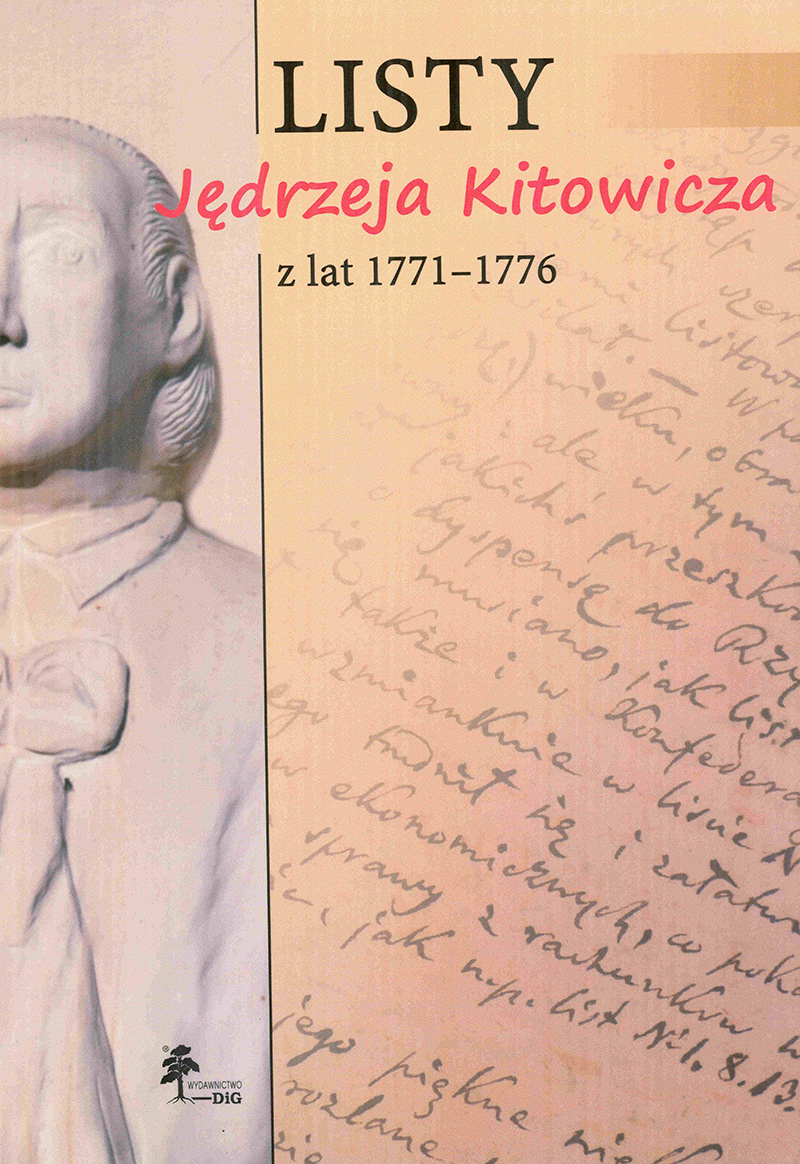 LISTY
Jędrzeja Kitowicza
z lat 1771–1776
listow
W
wielku, obra
ale w tym
jakichś przeszkó
o dyspensę do Rzy
się musiano, jak list
także i w Konfedera
wzmianknie w liście N
ego trudnił się i załatwi
w ekonomicznych, co poka
sprawy z rachunków w
jak np. list N1. 8. 13.
jego piękne nie
rozlane
®
WYDAWNICTWO
DiG